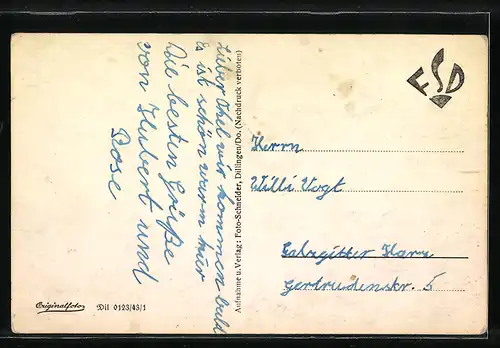 Lieber Onkel wir kommen bald
Es ist schön warm hier
Die besten Grüße
von Hubert und
Rose
Aufnahme u. Verlag: Foto-Schneider, Dillingen/Do. (Nachdruck verboten)
FSD
Herrn
Willi Vogt
Salzgitter Harz
Gertrudenstr. 5
Originalfoto
Dil 0123/43/1